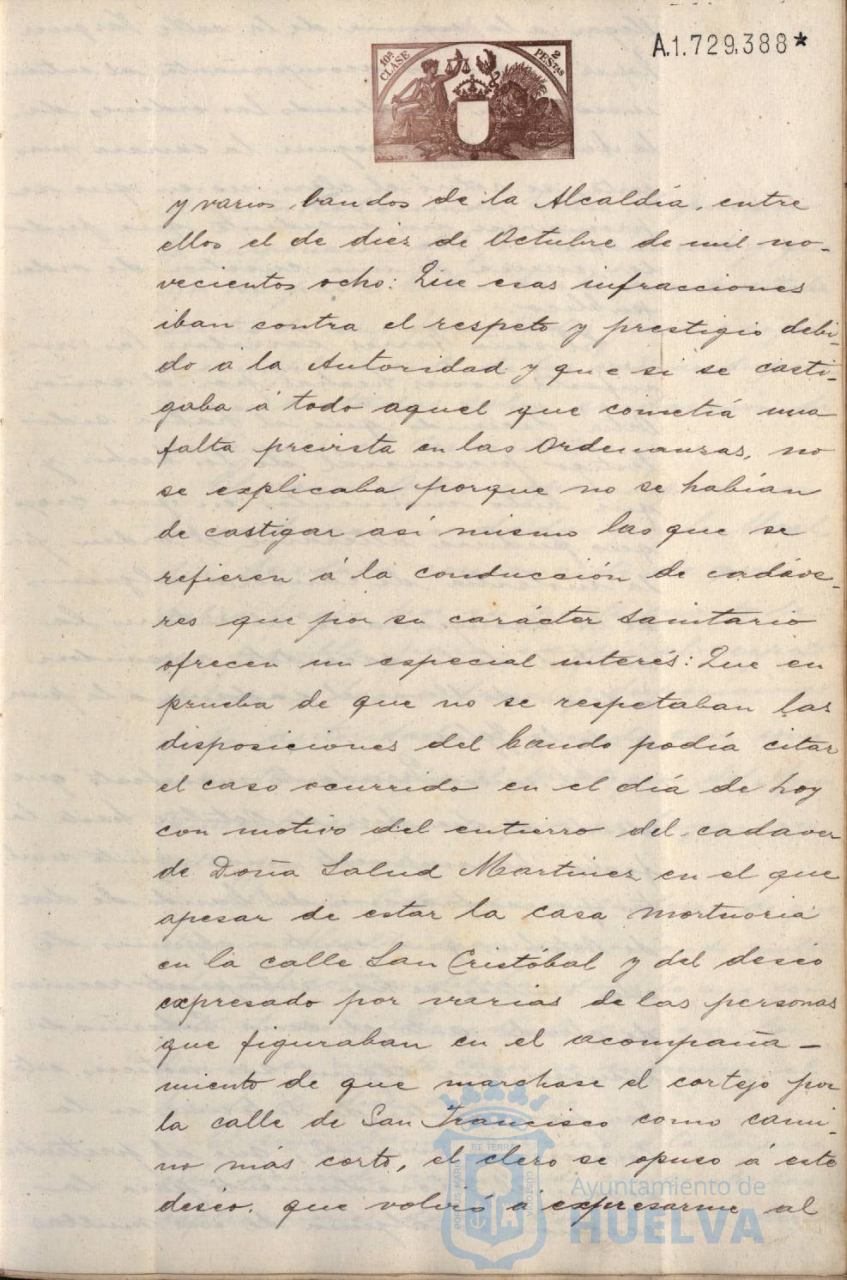 A.1.729.388*
10ª CLASE
2 PESTAS
y varios bandos de la Alcaldía, entre
ellos el de diez de Octubre de mil no-
vecientos ocho: Que esas infracciones
iban contra el respeto y prestigio debi-
do a la Autoridad y que si se casti-
gaba á todo aquel que cometiá una
falta prevista en las Ordenanzas, no
se explicaba porque no se habían
de castigar así mismo las que se
refieren á la conducción de cadáve-
res que por su carácter sanitario
ofrecen un especial interés: Que en
prueba de que no se respetaban las
disposiciones del bando podía citar
el caso ocurrido en el día de hoy
con motivo del entierro del cadaver
de Doña Salud Martinez en el que
apesar de estar la casa mortuoria
en la calle San Cristóbal y del deseo
expresado por varias de las personas
que figuraban en el acompaña-
miento de que marchase el cortejo por
la calle de San Francisco como cami-
no más corto, el clero se opuso á este
deseo, que volvió á expresarme al
Ayuntamiento de
HUELVA